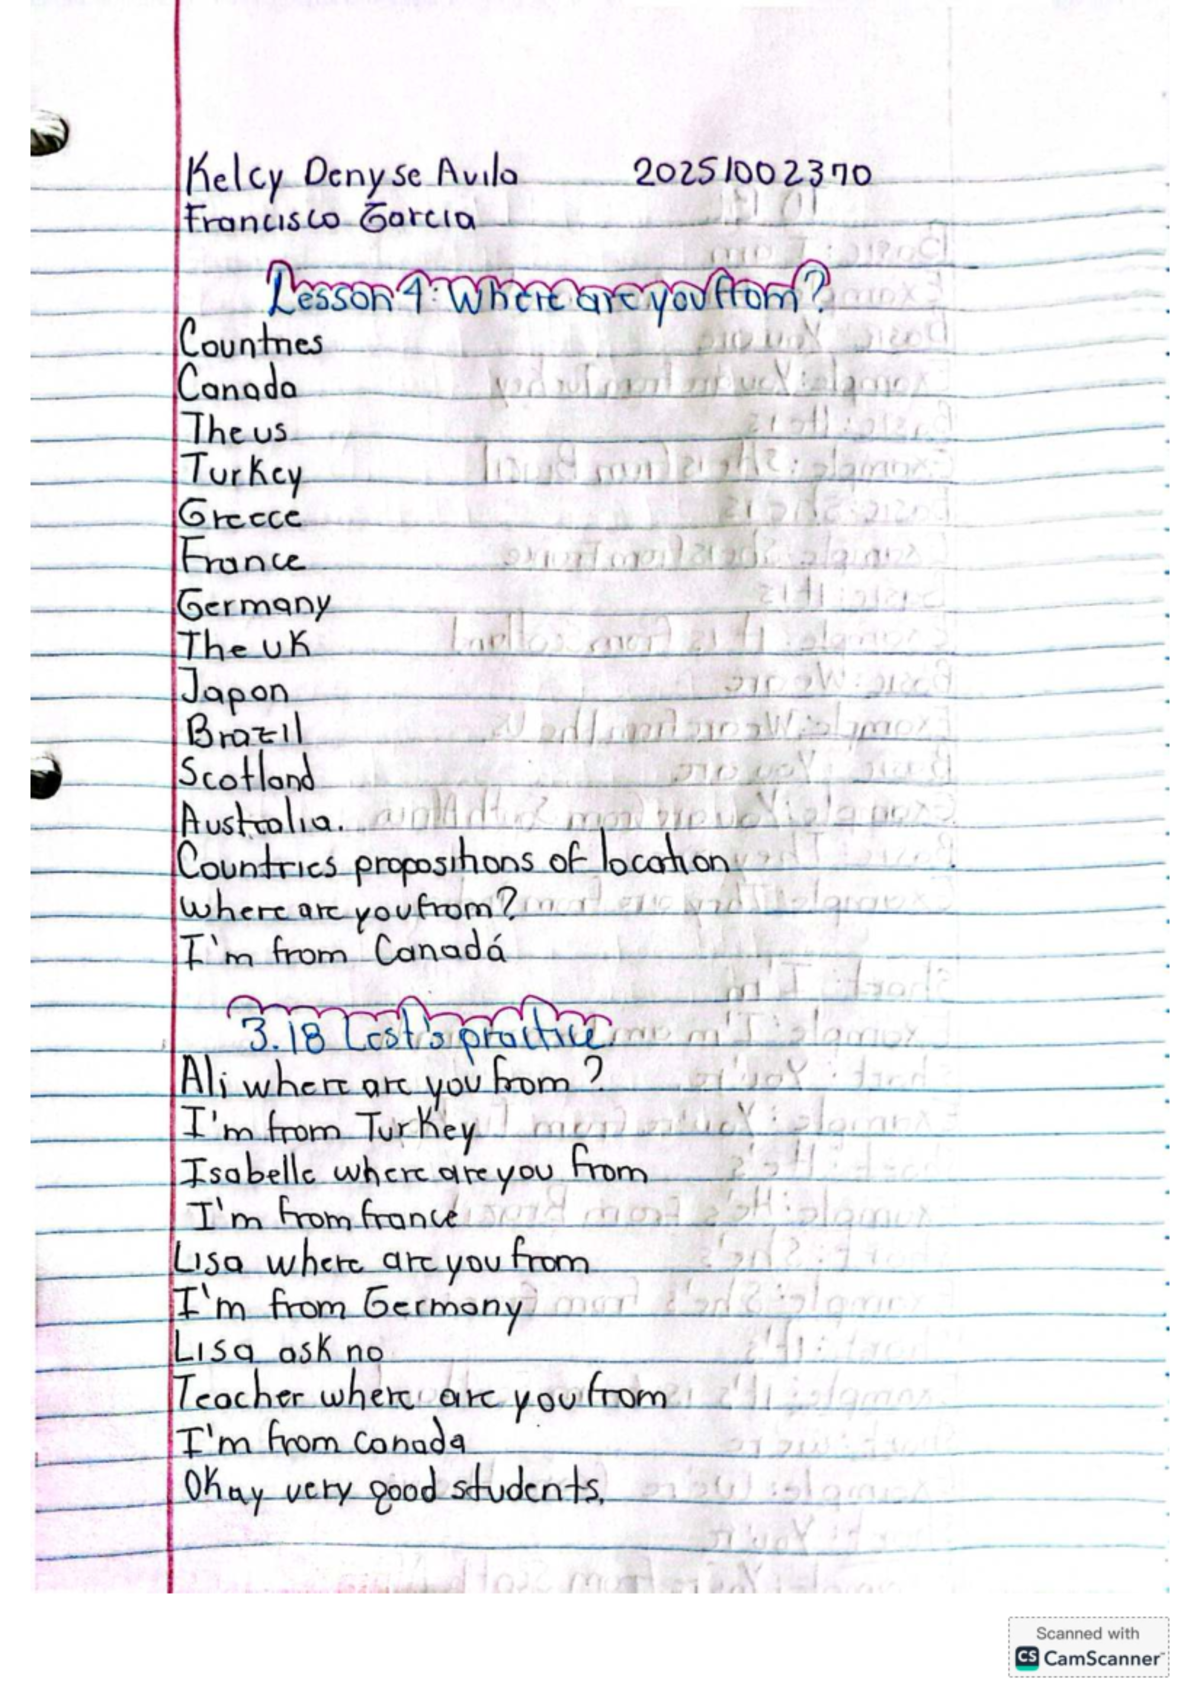 Kelcy Denyse Avila 20251002370
Francisco Garcia
Lesson 4: Where are you from?
Countries
Canada
The us
Turkey
Greece
France
Germany
The UK
Japon
Brazil
Scotland
Australia.
Countries propositions of location
Where are you from?
I'm from Canadá
3.18 Lest's practice
Ali where are you from?
I'm from Turkey
Isabelle where are you from
I'm from france
Lisa where are you from
I'm from Germany
Lisa ask no
Teacher where are you from
I'm from canada
Okay very good students.
Scanned with
CS CamScanner